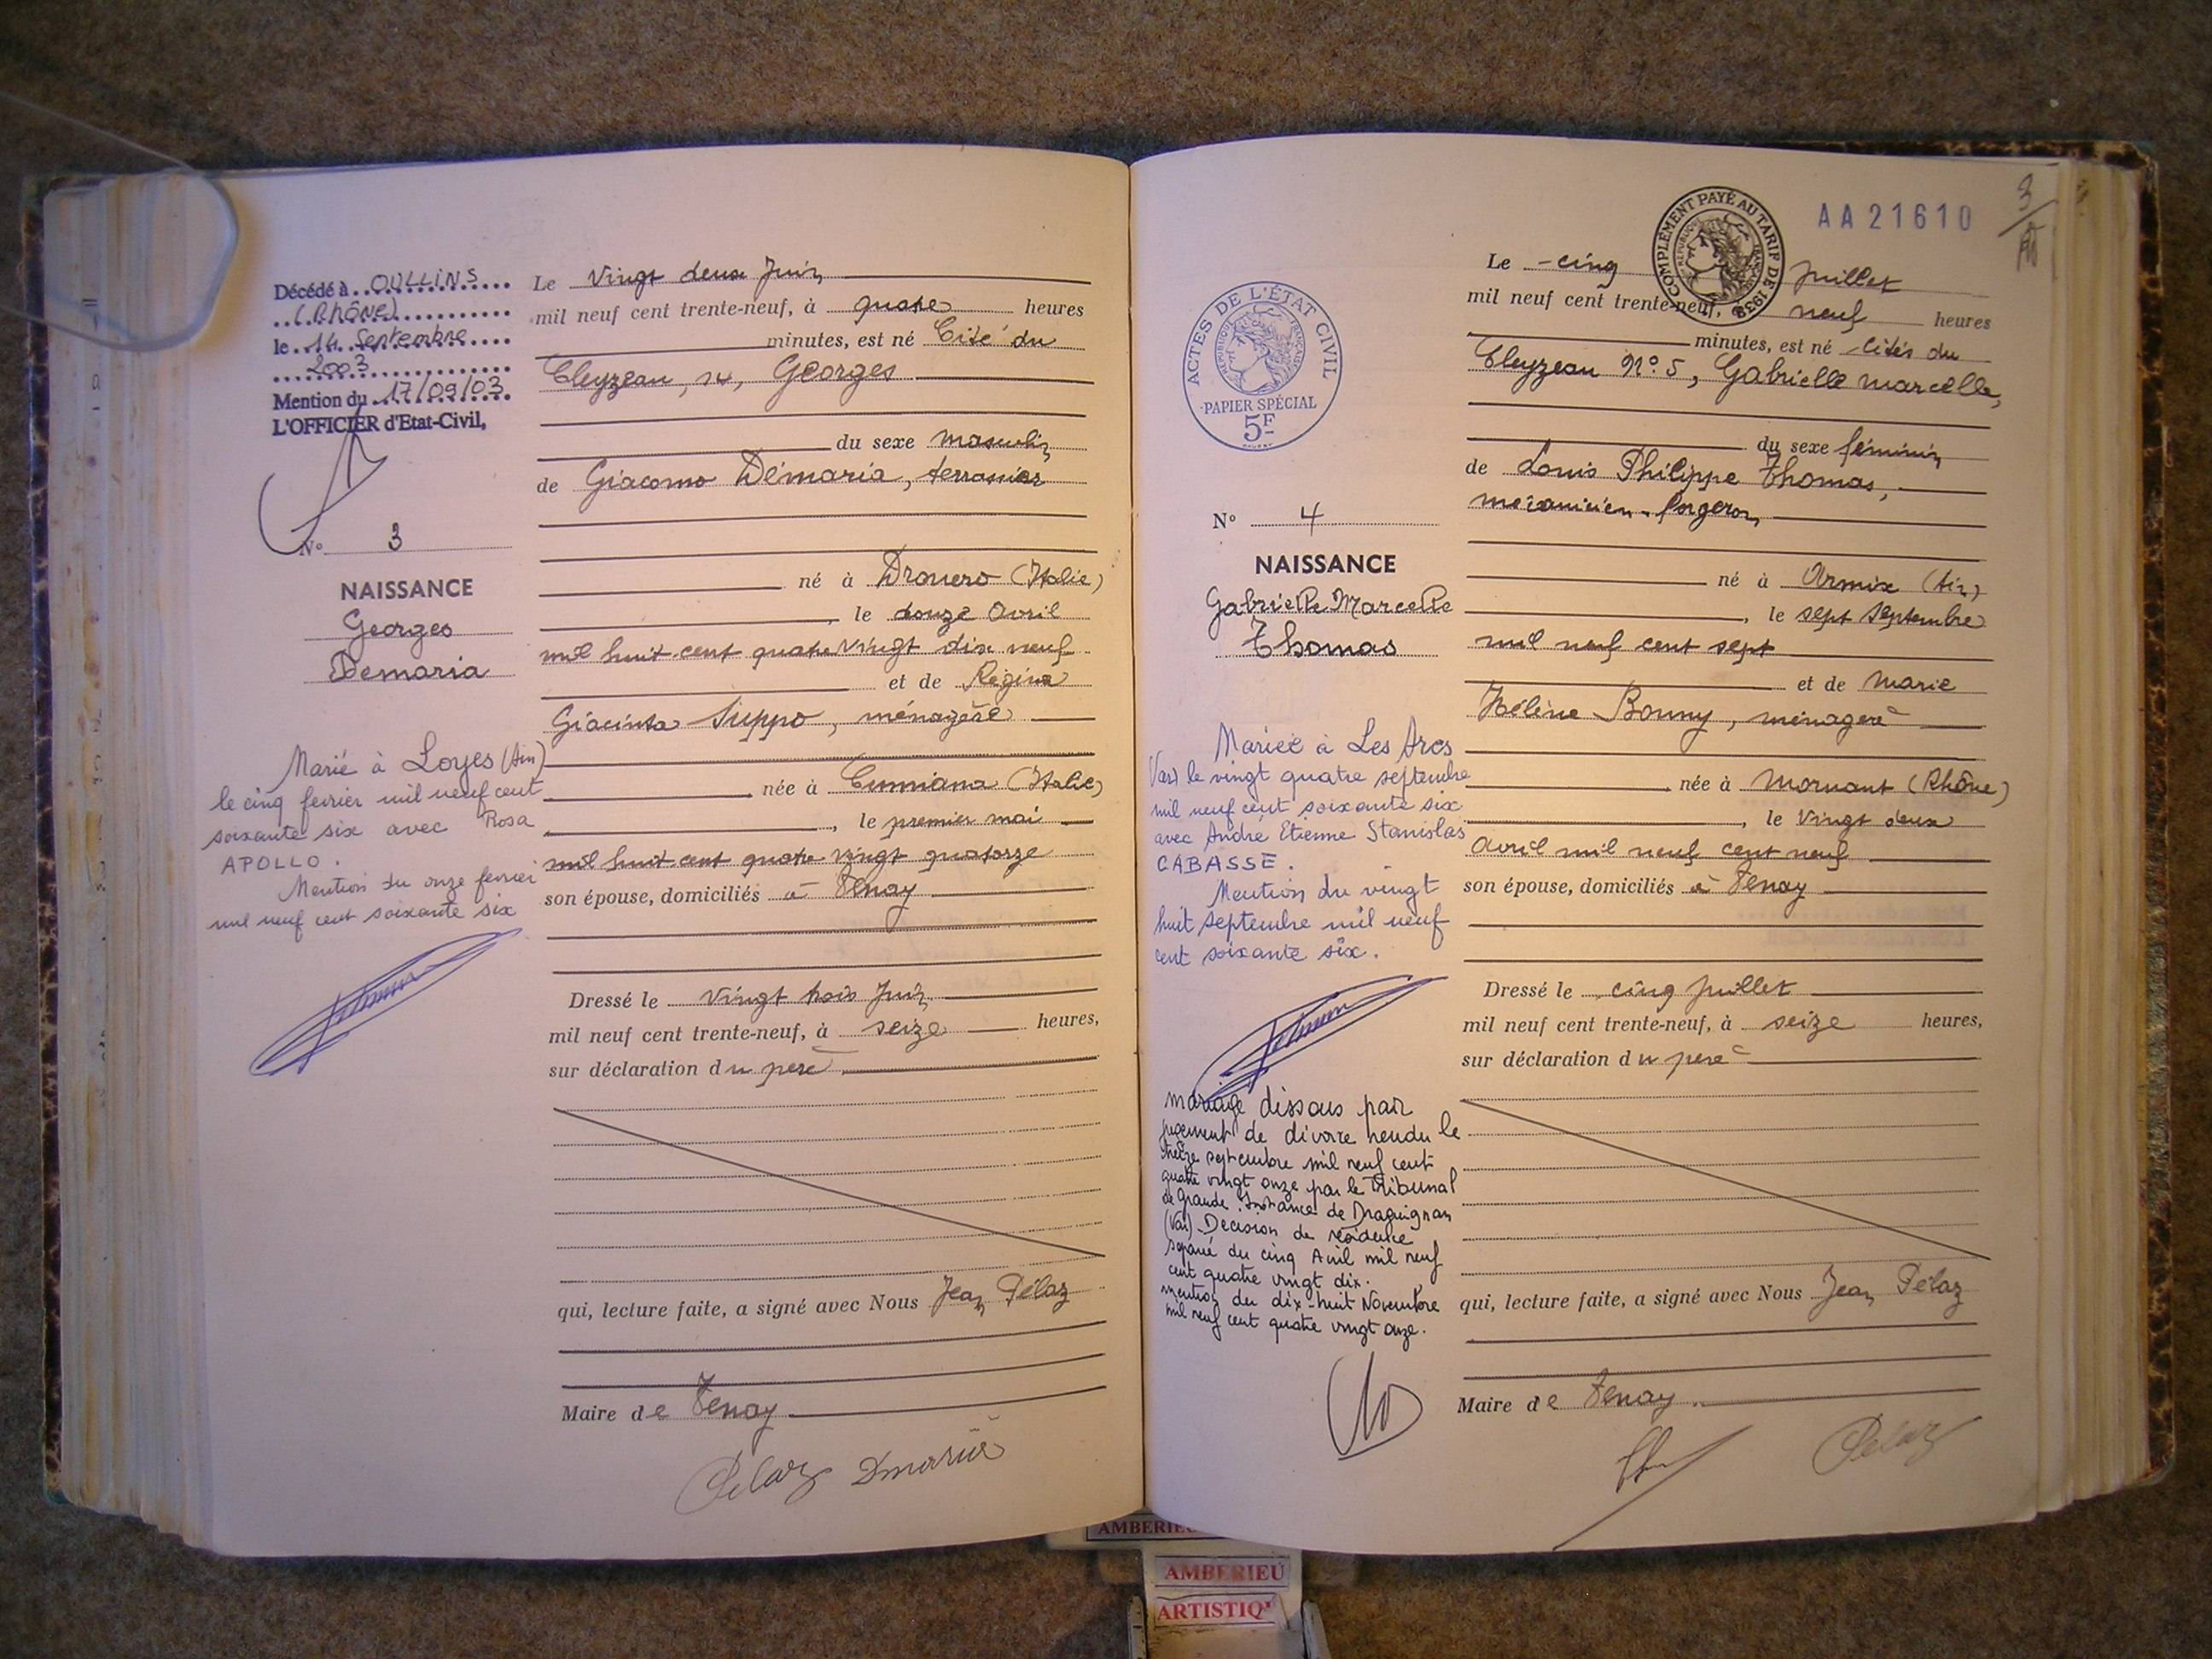 Décédé à OULLINS
(RHÔNE)
le 14 Septembre
2003
Mention du 17/09/03
L'OFFICIER d'Etat-Civil,
N° 3
NAISSANCE
Georges
Demaria
Marié à Loyes (Ain)
le cinq fevrier mil neuf cent
soixante six avec Rosa
APOLLO.
Mention du onze fevrier
mil neuf cent soixante six
Le Vingt deux Juin
mil neuf cent trente-neuf, à quatre heures
minutes, est né Cité du
Cleyzeau, Georges
du sexe masculin
de Giacomo Démaria, terrassier
né à Dronero (Italie)
, le douze Avril
mil huit cent quatre vingt dix neuf
et de Régina
Giacinta Suppo, ménagère
née à Cumiana (Italie)
, le premier mai
mil huit cent quatre vingt quatorze
son épouse, domiciliés à Tenay
Dressé le Vingt trois Juin
mil neuf cent trente-neuf, à seize heures,
sur déclaration du père
qui, lecture faite, a signé avec Nous Jean Pélaz
Maire de Tenay
Pelaz Dmaria
AA21610
3
COMPLÉMENT PAYÉ AU TARIF DE 1938
RÉPUBLIQUE FRANÇAISE
ACTES DE L'ÉTAT CIVIL
RÉPUBLIQUE FRANÇAISE
PAPIER SPÉCIAL
5F
N° 4
NAISSANCE
Gabrielle Marcelle
Thomas
Mariée à Les Arcs
(Var) le vingt quatre septembre
mil neuf cent soixante six
avec André Etienne Stanislas
CABASSE.
Mention du vingt
huit septembre mil neuf
cent soixante six.
mariage dissous par
jugement de divorce rendu le
treize septembre mil neuf cent
quatre vingt onze par le Tribunal
de Grande Instance de Draguignan
(Var) Decision de résidence
séparé du cinq Avril mil neuf
cent quatre vingt dix.
mention du dix-huit Novembre
mil neuf cent quatre vingt onze.
Le cinq Juillet
mil neuf cent trente-neuf, à neuf heures
minutes, est né cités du
Cleyzeau N° 5, Gabrielle marcelle,
du sexe féminin
de Louis Philippe Thomas,
mécanicien-forgeron
né à Armix (Ain)
, le sept Septembre
mil neuf cent sept
et de Marie
Hélène Bonny, ménagère
née à Mornant (Rhône)
, le Vingt deux
Avril mil neuf cent neuf
son épouse, domiciliés à Tenay
Dressé le cinq Juillet
mil neuf cent trente-neuf, à seize heures,
sur déclaration du père
qui, lecture faite, a signé avec Nous Jean Pélaz
Maire de Tenay.
Pelaz
AMBERIEU
AMBERIEU
ARTISTIQ